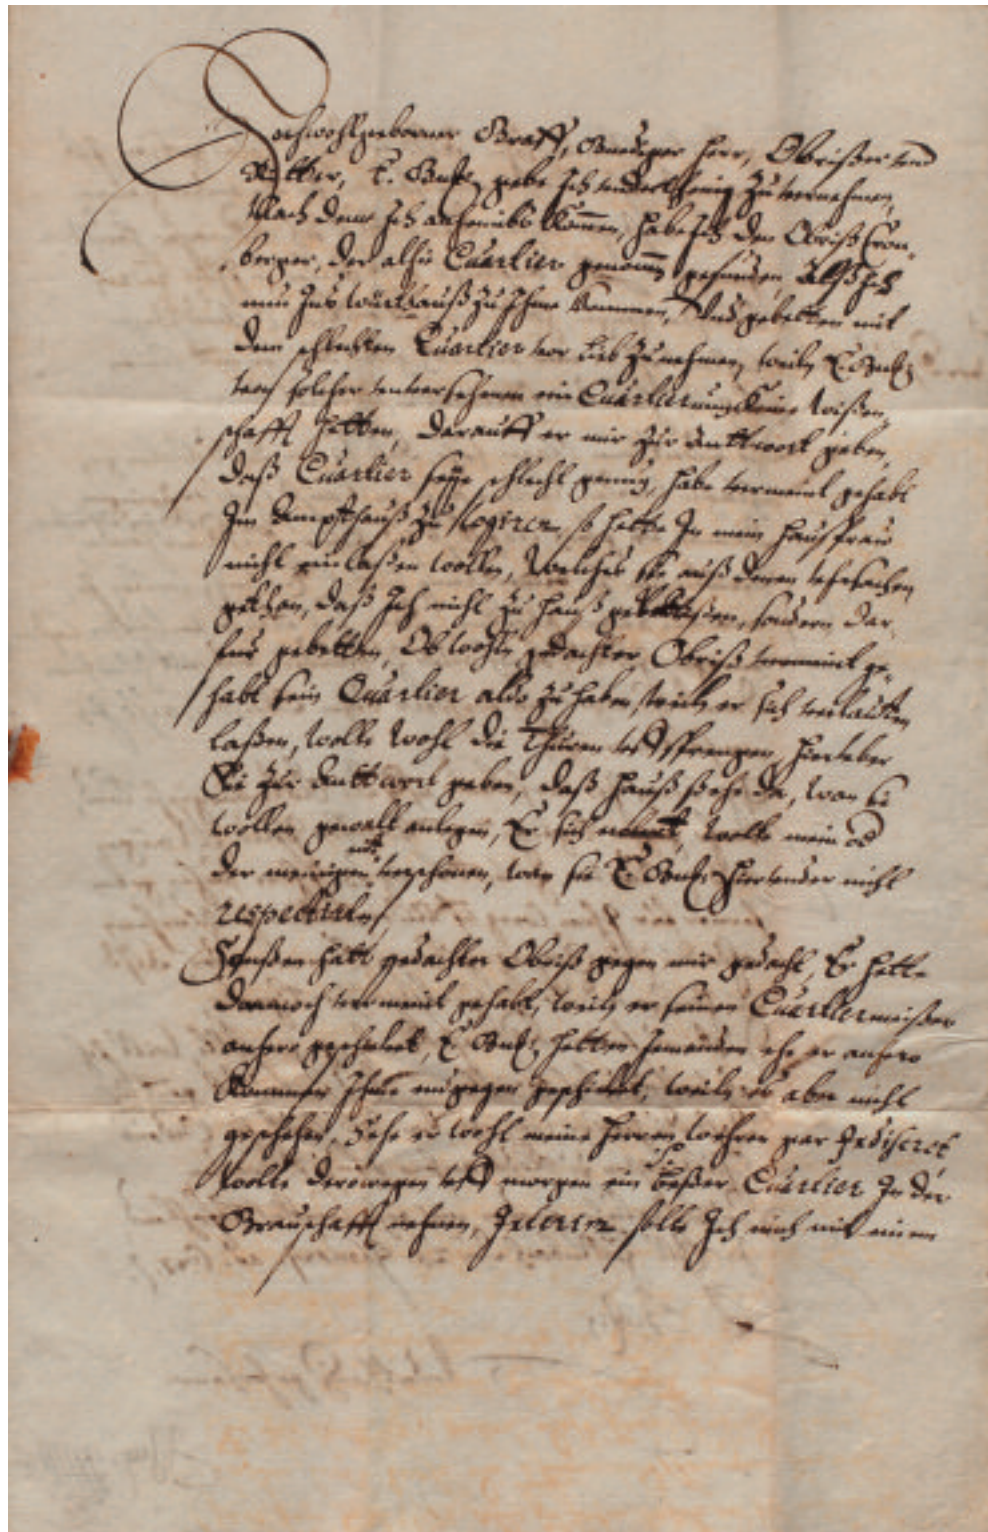 Hochwohlgeborner Graff, Gnediger Herr, Obrister vnd
Ritter, E. Gnd. gebe Ich vnderthenig zu vernehmen,
Nach deme Ich anheimbs kommen, habe Ich den Obrist Cron¬
berger, der alhie Quartier genommen gefunden, Alß Ich
nun Ins würthauß zu Ihme kommen, Vnd gebetten mit
dem schlechten Quartier vor lieb zu nehmen, weiln E. Gnd.
von solcher vnversehenen ein Quartierung keine wißen¬
schafft hetten, darauff er mir zur anttwort geben,
daß Quartier seye schlecht genug, habe vermeint gehabt
Im Amptshauß zu logiren, so hette In mein haußfraw
nicht einlaßen wollen, welches sie auß denen vrsachen
gethan, daß Ich nicht zu hauß gewesen, sondern dar
fur gebetten, Ob wohln gedachter Obrist vermeint ge¬
habt sein Quartier aldo zu haben, weiln er sich verlautten
laßen, wolle wohl die Thüren vff sprengen, hierüber
Sie zur anttwort geben, daß hauß stehe da, wan sie
wollen gewalt anlegen, Er sich wolle mein od
der meinigen nit verschonen, wan sie E. Gnd. hierunder nicht
respectirten,
Sonsten hatt gedachter Obrist gegen mir gedacht, Er hette
dannoch vermeint gehabt, weiln er seinen Quartiermeister
anhero geschickt, E. Gnd. hetten Jemanden ehe er anhero
kommen Ihme endgegen geschickt, weiln es aber nicht
geschehen, Sehe er wohl meine Herren wehren gar Indiscret
wolle derowegen vff morgen ein beßer Quartier In der
Graffschafft nehmen, Interim solle Ich mich mit einem